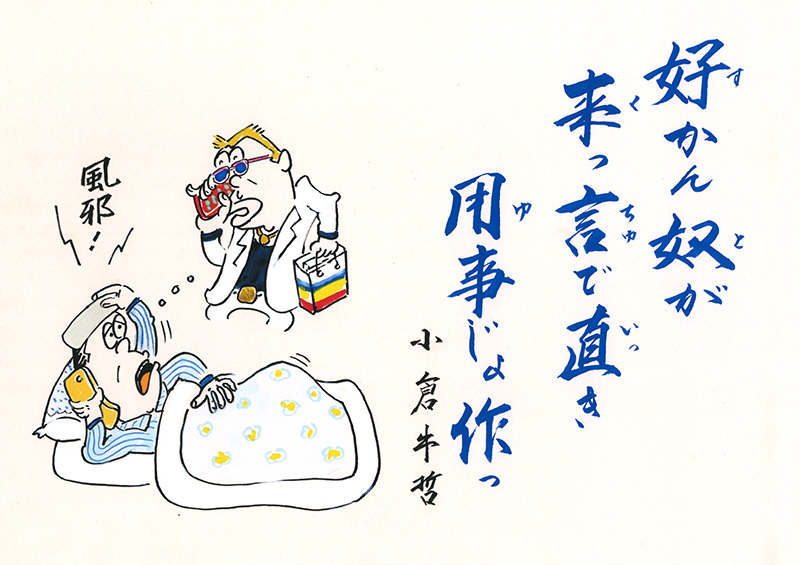 好かん奴が
す
と
来っ言で直き
く
ちゅ
いっ
用事じょ作っ
ゆ
小倉牛哲
風邪!